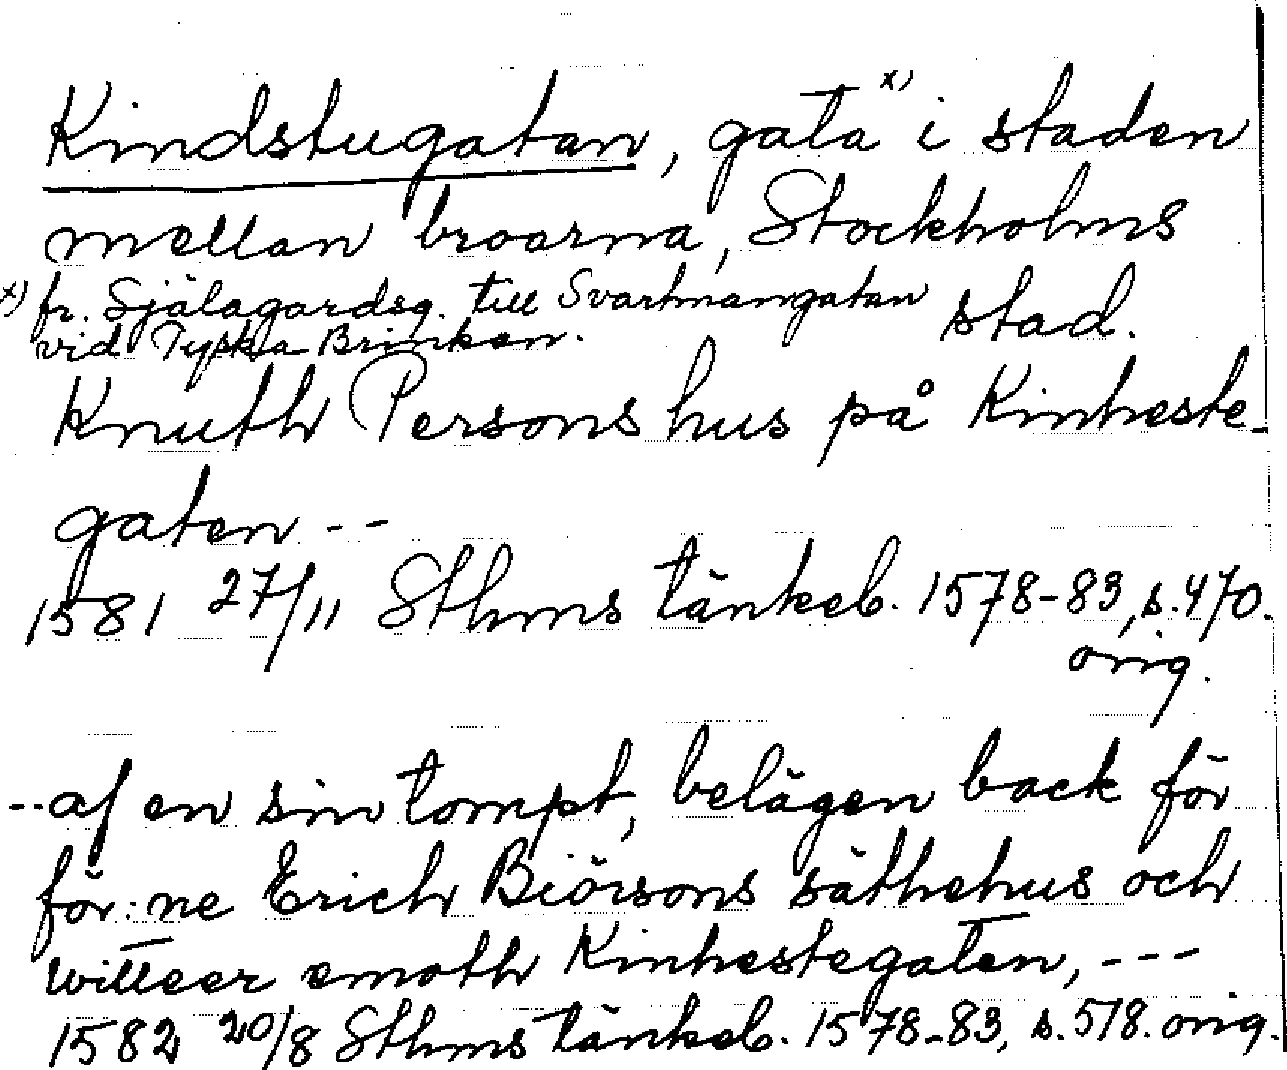 Kindstugatan, gata x) i staden
mellan broarna, Stockholms
stad.
x) fr. Själagardsg. till Svartmangatan
vid Tyska Brinken.
Knuth Persons hus på Kinheste-
gaten --
1581 27/11 Sthms tänkeb. 1578-83, s. 470.
orig.
-- af en sin tompt, belägen back för
för:ne Erich Biörsons säthehus och
witteer emoth Kinhestegaten, ---
1582 20/8 Sthms tänkeb. 1578-83, s. 518. orig.